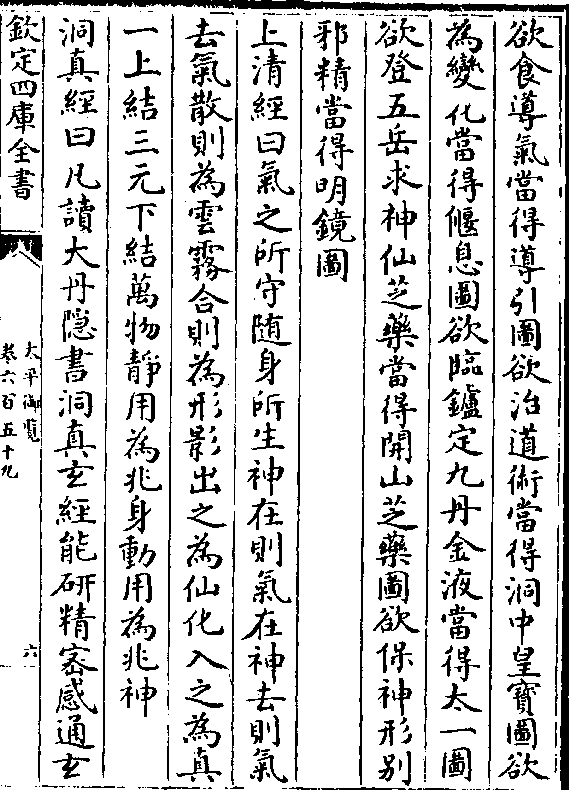 欲食導氣當得導引圖欲治道術當得洞中皇寶圖欲
為變化當得偃息圖欲臨鑪定九丹金液當得太一圖
欲登五岳求神仙芝藥當得開山芝藥圖欲保神形别
邪精當得明鏡圖
上清經曰氣之所守随身所生神在則氣在神去則氣
去氣散則為雲霧合則為形影出之為仙化入之為真
一上結三元下結萬物靜用為兆身動用為兆神
洞真經曰凡讀大丹隐書洞真玄經能研精宻感通玄
欽定四庫全書
太平御覧
卷六百五十九
六